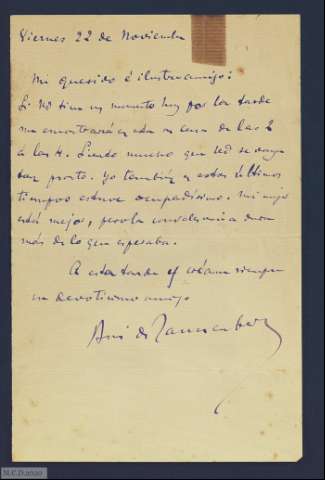 Viernes 22 de Noviembre
Mi querido é ilustre amigo:
Si Vd tiene un momento hoy por la tarde
me encontrará en casa de las 2
á las 4. Siento mucho que Vd se vaya
tan pronto. Yo también estos últimos
tiempos estuve ocupadísimo. Mi
está mejor, pero la convalecencia dura
más de lo que esperaba.
A esta tarde créame siempre
su devotísimo amigo
de